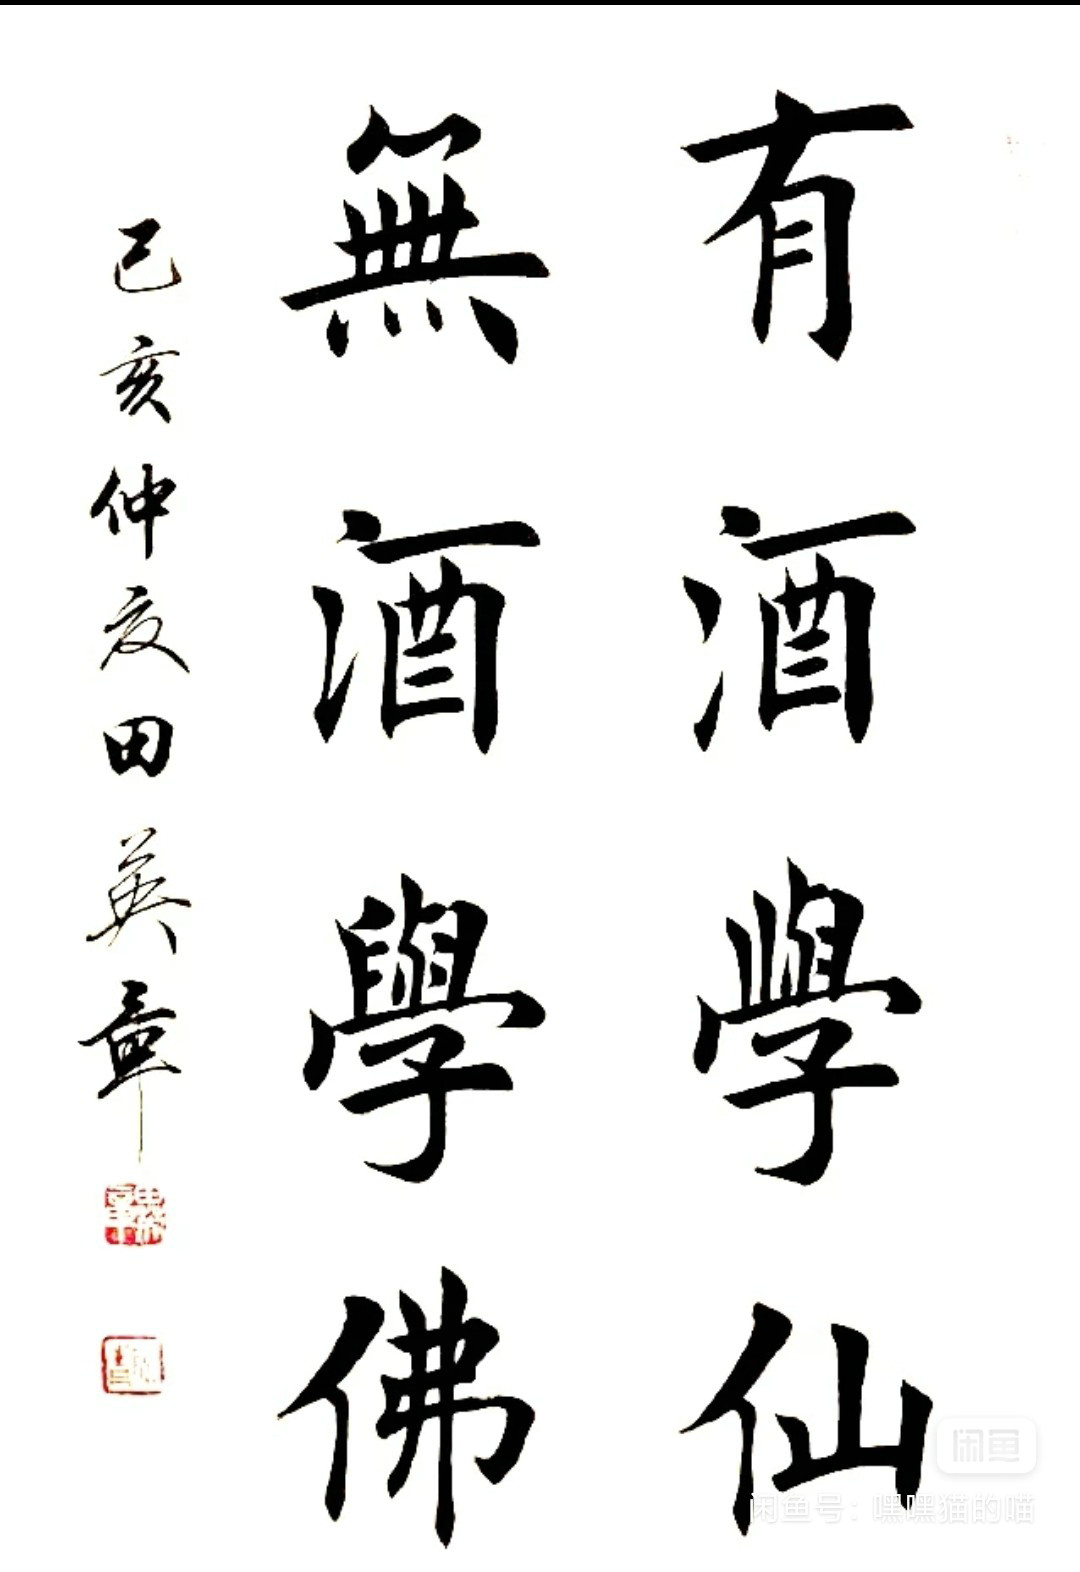 有酒學仙
無酒學佛
己亥仲夏田英章
闲鱼
闲鱼号：嘿嘿猫的喵